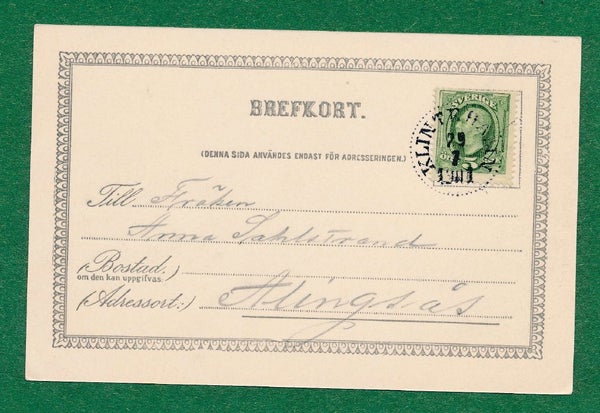 BREFKORT.
SVERIGE
KLINTEHAMN
29
7
1901
(DENNA SIDA ANVÄNDES ENDAST FÖR ADRESSERINGEN.)
Till Fröken
Anna Sahlstrand
(Bostad.)
om den kan uppgifvas.
(Adressort:) Alingsås